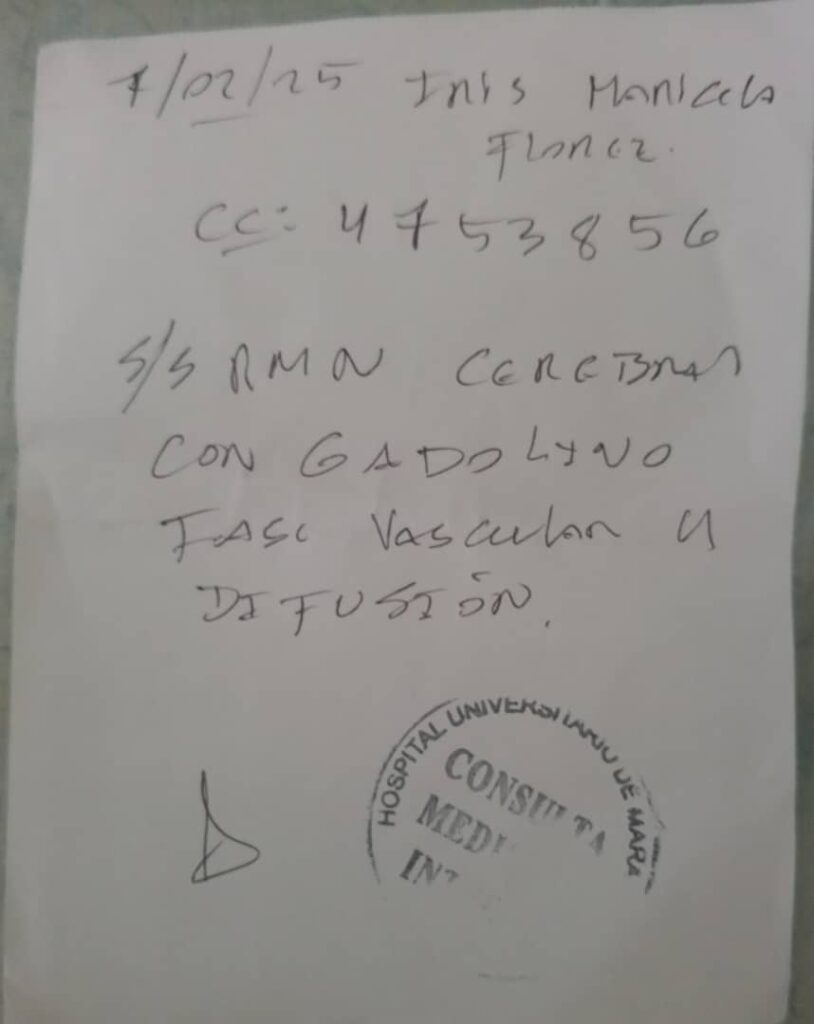 7/02/25 Iris Maricela
Florez.
CC: 4753856
S/S RMN CEREBRAL
CON GADOLYNO
FASE Vascular y
DIFUSIÓN.
HOSPITAL UNIVERSITARIO DE MARA
CONSULTA